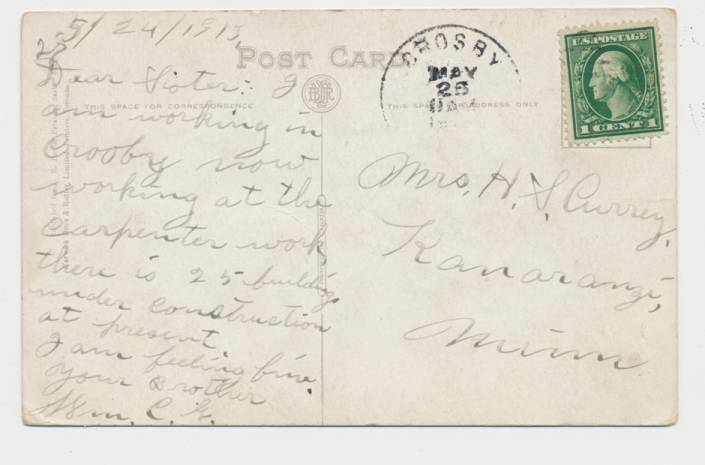 5/24/1913
POST CARD
Dear Sister: I
THIS SPACE FOR CORRESPONDENCE
am working in
Crosby now
working at the
Carpenter work
there is 25 building
under construction
at present.
I am feeling fine.
your Brother
Wm. C. G.
CROSBY
MAY
26
U.S. POSTAGE
1 CENT 1
ADDRESS ONLY
Mrs. H. S. Currey,
Kanaranzi,
Minn